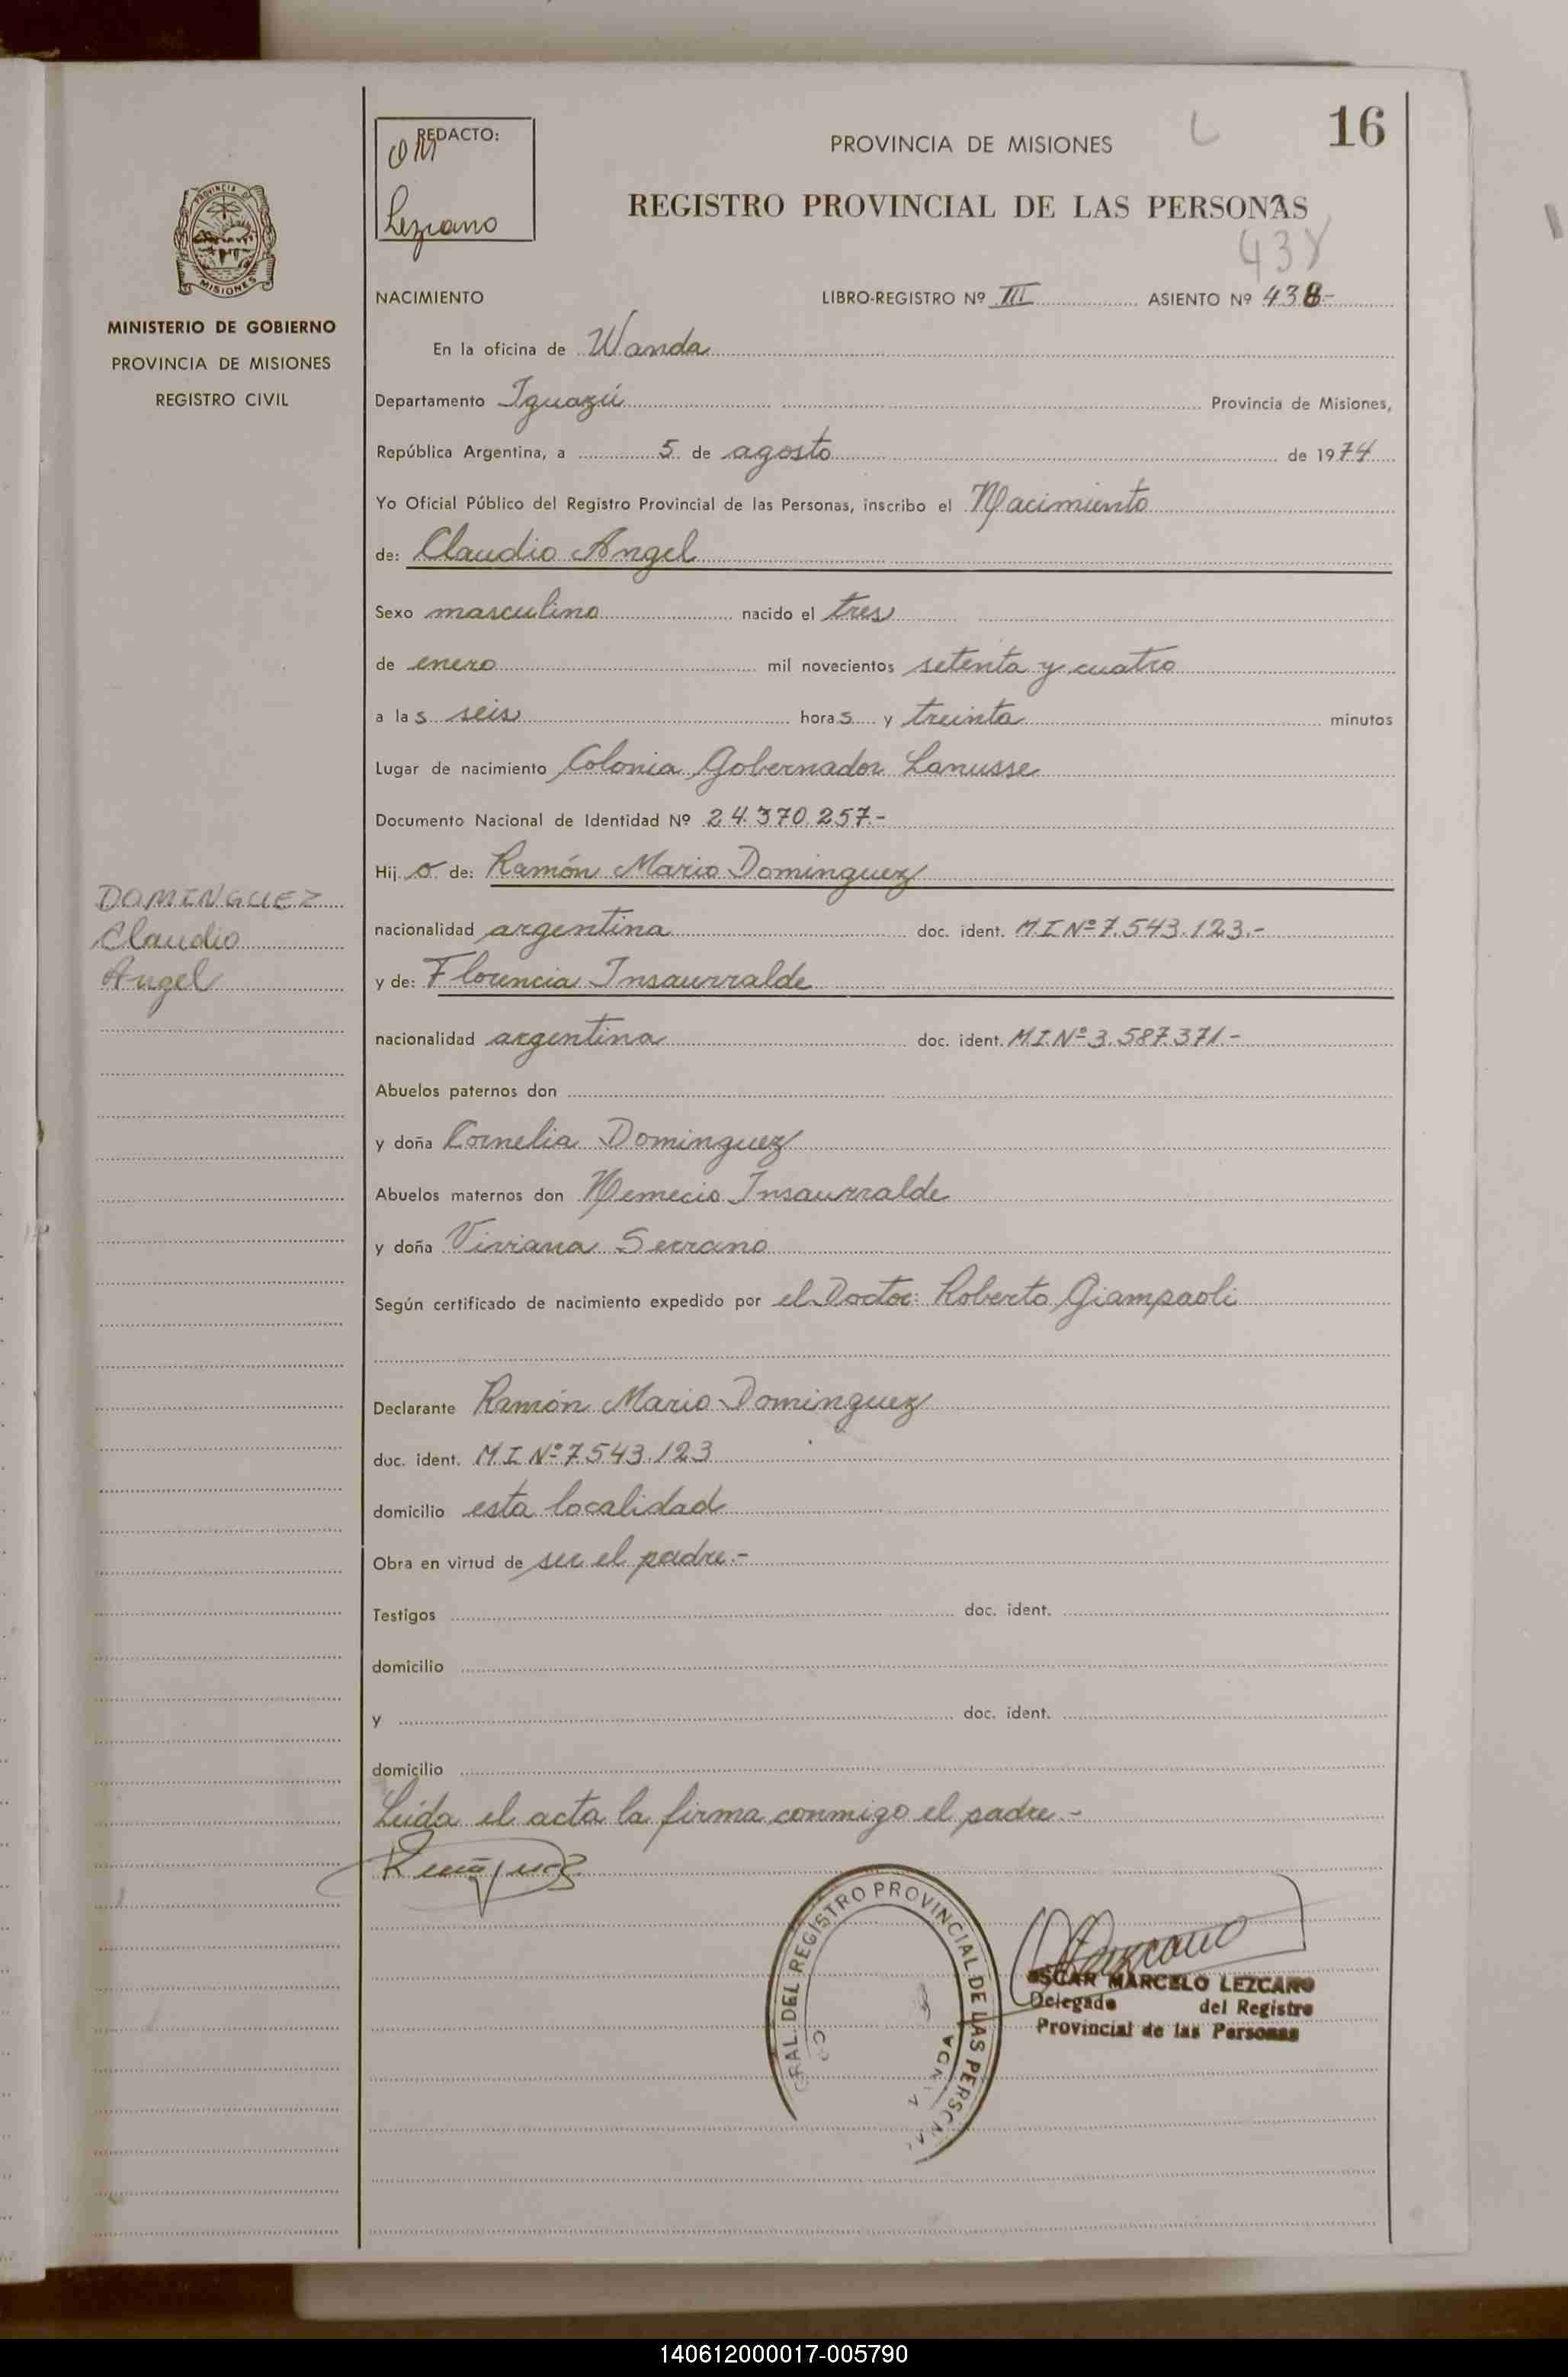 16
REDACTO:
OM
Lezcano
PROVINCIA DE MISIONES
REGISTRO PROVINCIAL DE LAS PERSONAS
438
PROVINCIA DE
MISIONES
MINISTERIO DE GOBIERNO
PROVINCIA DE MISIONES
REGISTRO CIVIL
NACIMIENTO LIBRO-REGISTRO Nº III ASIENTO Nº 438-
En la oficina de Wanda
Departamento Iguazú Provincia de Misiones,
República Argentina, a 5 de agosto de 1974
Yo Oficial Público del Registro Provincial de las Personas, inscribo el Nacimiento
de: Claudio Angel
Sexo masculino nacido el tres
de enero mil novecientos setenta y cuatro
a las seis horas y treinta minutos
Lugar de nacimiento Colonia Gobernador Lanusse
Documento Nacional de Identidad Nº 24.370.257.-
Hijo de: Ramón Mario Dominguez
DOMINGUEZ
Claudio
Angel
nacionalidad argentina doc. ident. M I Nº 7.543.123.-
y de: Florencia Insaurralde
nacionalidad argentina doc. ident. M.I.Nº 3.587.371.-
Abuelos paternos don
y doña Cornelia Dominguez
Abuelos maternos don Nemecio Insaurralde
y doña Viviana Serrano
Según certificado de nacimiento expedido por el Doctor: Roberto Giampaoli
Declarante Ramón Mario Dominguez
doc. ident. M I Nº 7.543.123
domicilio esta localidad
Obra en virtud de ser el padre.-
Testigos doc. ident.
domicilio
y doc. ident.
domicilio
Leída el acta la firma conmigo el padre.-
GRAL. DEL REGISTRO PROVINCIAL DE LAS PERSONAS
OSCAR MARCELO LEZCANO
Delegado del Registro
Provincial de las Personas
140612000017-005790